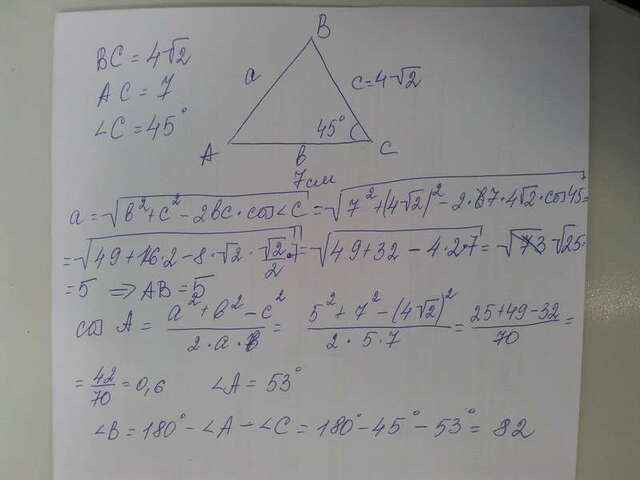 BC = 4√2
AC = 7
∠C = 45°
B
a
c=4√2
45°
A
в
C
7см
a = √(в²+c² − 2вc · cos∠C) = √(7² + (4√2)² − 2·7·4√2·cos45 =
= √(49+16·2 − 8·√2 · √2/2 ·7) = √(49+32 − 4·2·7) = √25 =
= 5 ⇒ AB = 5
cos A = (a² + в² − c²)/(2·a·в) = (5² + 7² − (4√2)²)/(2·5·7) = (25+49−32)/70 =
= 42/70 = 0,6 ∠A = 53°
∠B = 180° − ∠A − ∠C = 180° − 45° − 53° = 82